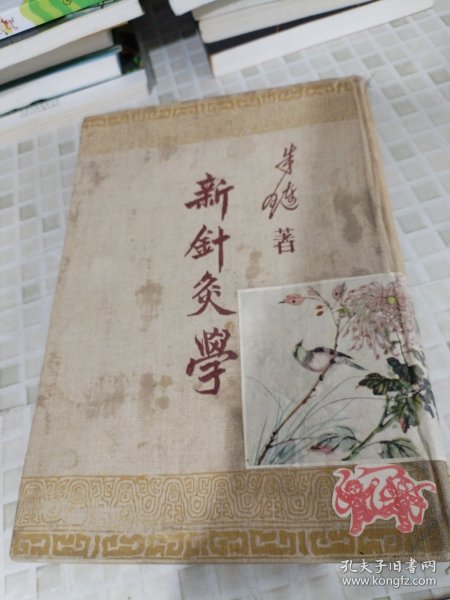 朱璉 著
新針灸學
孔夫子旧书网
www.kongfz.com